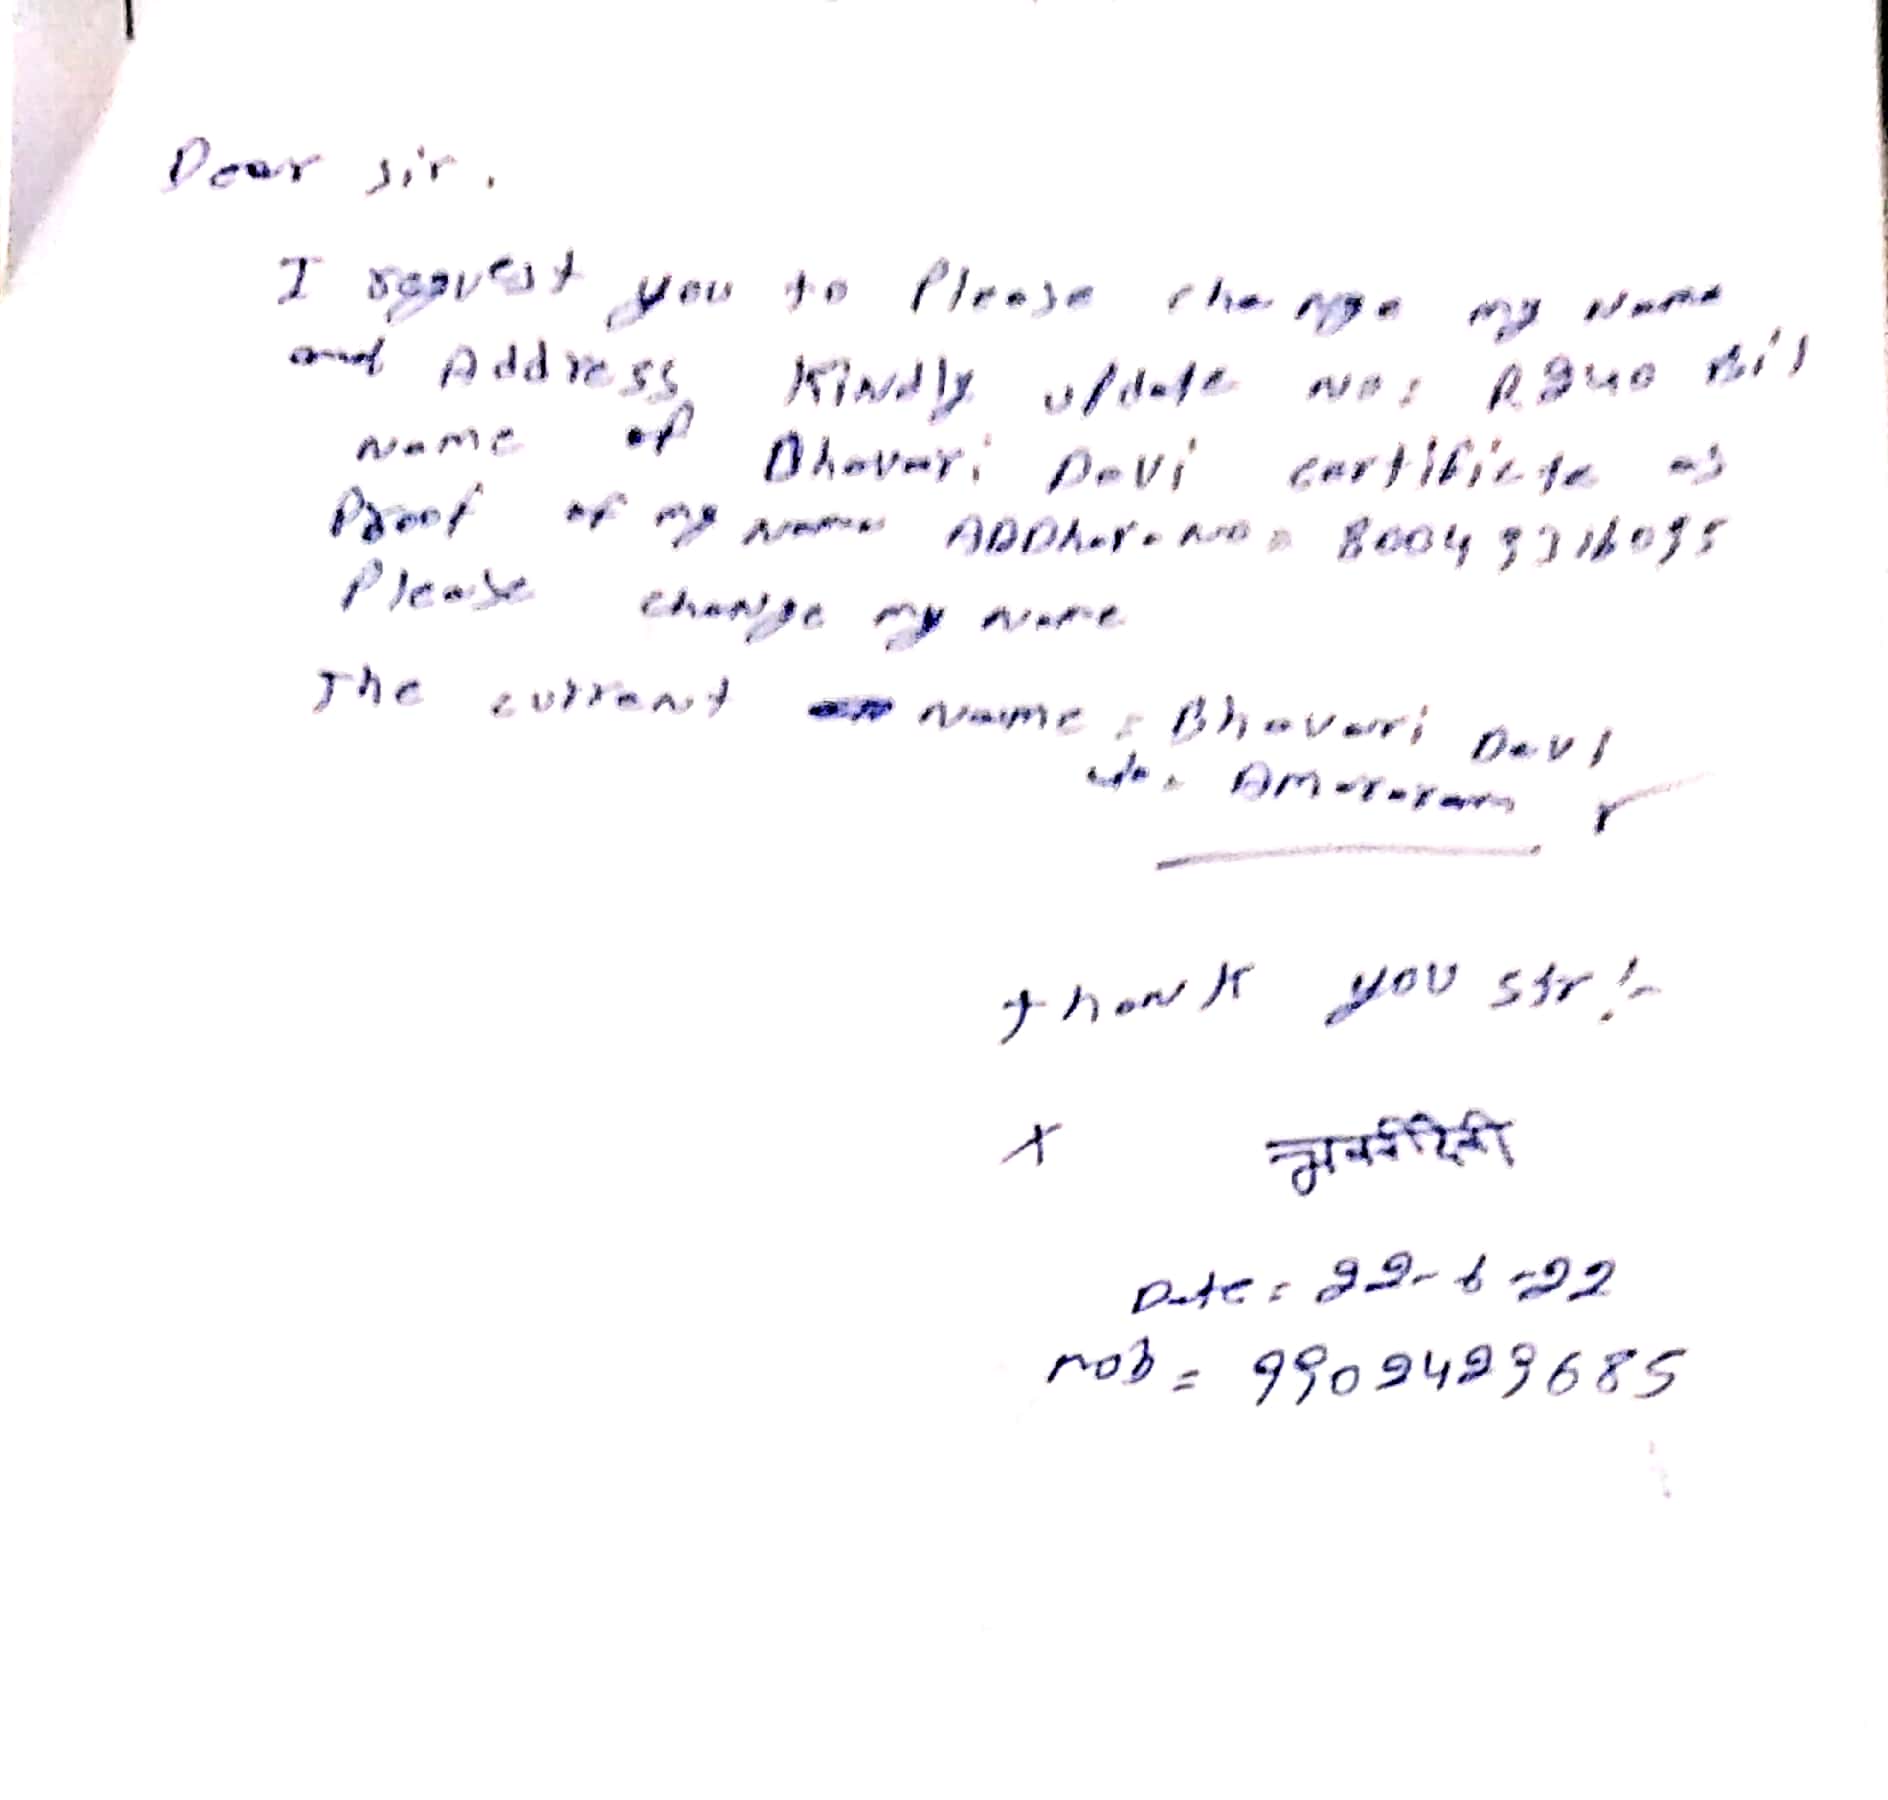 Dear sir,
I request you to Please change my Name
and Address Kindly update No: R240 Bil
Name of Bhavari Devi certificte as
Proof of my Name ADDhara No
Please change my Name
The current Name: Bhavari Devi
w/o. Amararam
thank you sir!-
x
Date: 22-6-22
mob = 9902423685